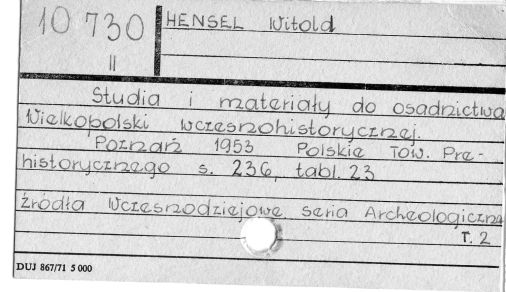 10 730
II
HENSEL Witold
Studia i materiały do osadnictwa
Wielkopolski wczesnohistorycznej.
Poznań 1953 Polskie Tow. Pre-
historycznego s. 236, tabl. 23
Źródła Wczesnodziejowe seria Archeologiczna
T. 2
DUJ 867/71 5 000